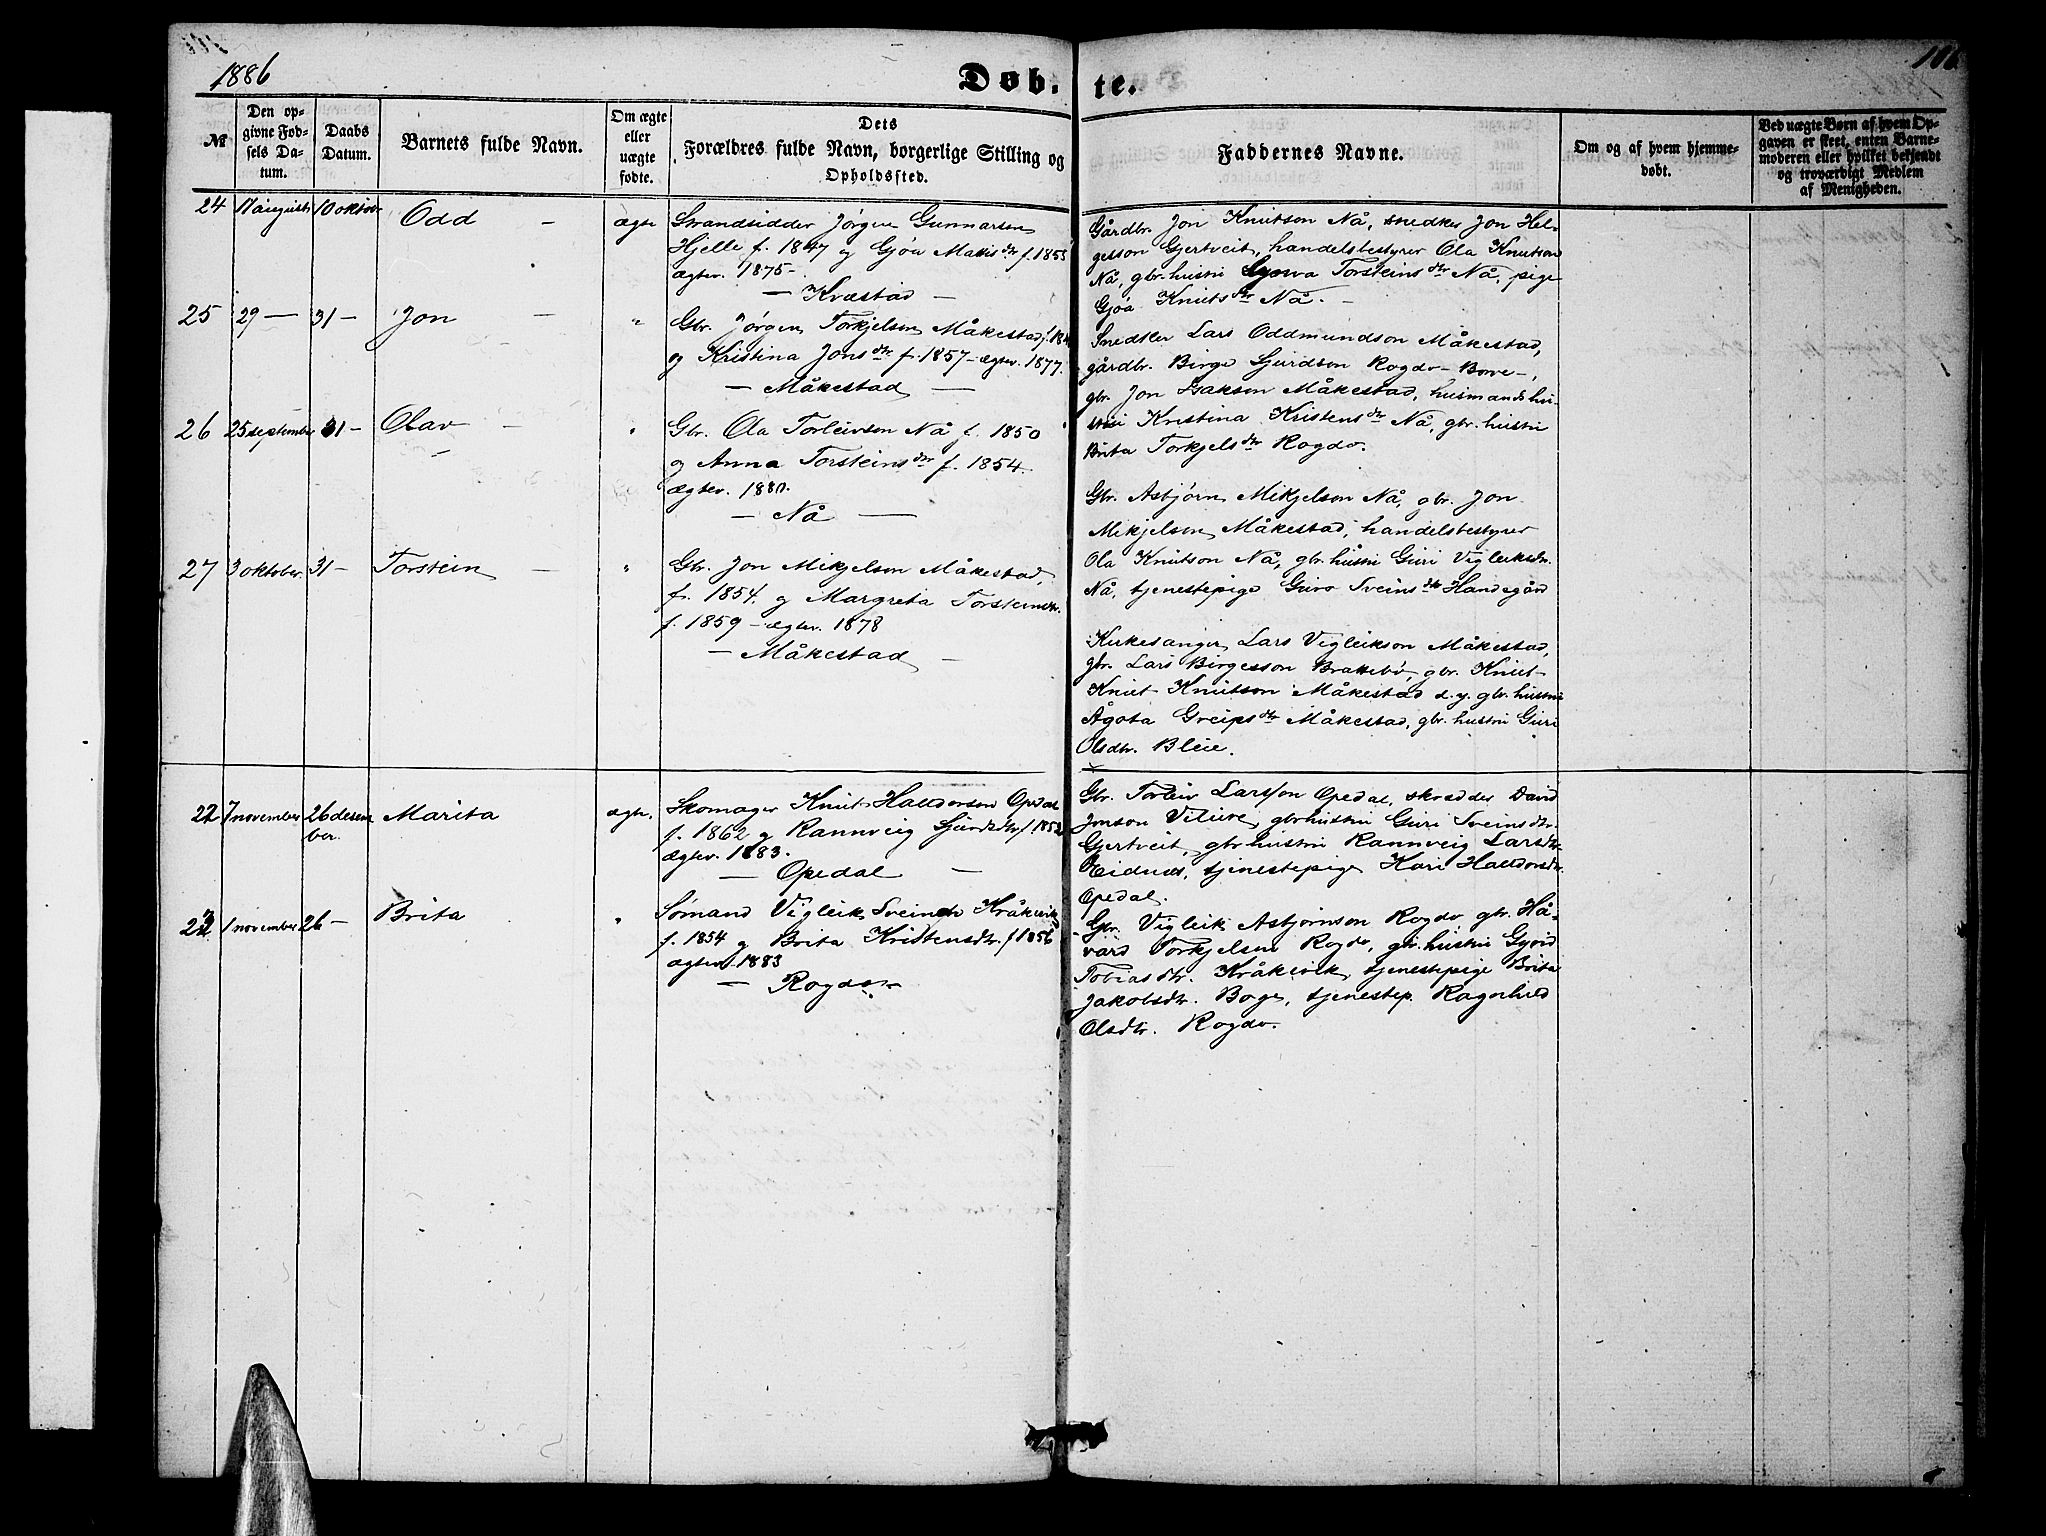 1886
Døb-
te.
№
Den op-
givne Fød-
sels Da-
tum.
Daabs
Datum.
Barnets fulde Navn.
Om ægte
eller
uægte
fødte.
Dets
Forældres fulde Navn, borgerlige Stilling og
Opholdssted.
Faddernes Navne.
Om og af hvem hjemme-
døbt.
Ved uægte Børn af hvem Op-
gaven er skeet, enten Barne-
moderen eller hvilket bekjendt
og troværdigt Medlem
af Menigheden.
24 11 august 10 oktob. Odd – ægte Strandsidder Jørgen Gunnarsen
Hjelle f. 1847 og Gjøa f. 1855
ægtev. 1875 –
– Kvæstad –
Gårdbr. Jon Knutson Nå, snedker Jon Hel-
gesson Gjertveit, handelsbestyrer Ola Knutson
Nå, gbr. hustru Torsteins dtr Nå, pige
Gjøa Knuts dtr Nå. –
25 29 – 31 – Jon – " Gbr. Jørgen Torkjelson Måkestad
og Kristina Jons dtr f. 1857 – ægtev. 1877.
– Måkestad –
Snedker Lars Oddmundson Måkestad,
gårdbr. Birge Sjurdson Rogdo – Bove –,
gbr. Jon Isakson Måkestad, husmandshu-
stru Kristina Kristens dtr Nå, gbr. hustru
Brita Torkjels dtr Rogdo.
26 25 september 31 – Olav – " Gbr. Ola Torleivson Nå f. 1850
og Anna Torsteins dtr f. 1854.
ægtev. 1880.
– Nå –
Gbr. Asbjørn Mikjelson Nå, gbr. Jon
Mikjelson Måkestad, handelsbestyrer
Ola Knutson Nå, gbr. hustru Guri Vigleiksdtr.
Nå, tjenestepige Guro Sveins dtr Handegård
27 3 oktober. 31 – Torstein – " Gbr. Jon Mikjelson Måkestad,
f. 1854. og Margreta Torsteinsdtr.
f. 1859 – ægtev. 1878
– Måkestad –
Kirkesanger Lars Vigleikson Måkestad,
gbr. Lars Birgesson Brattebø, gbr. Knut
Knut Knutson Måkestad d. y. gbr. hustru
Ågota Greips dtr Måkestad, gbr. hustru Guri
Olsdtr. Bleie.
22 7 november 26 desem
ber. Marita ægte. Skomager Knut Halldorson Opedal
f. 1862 og Rannveig Sjursdtr f. 1852
ægtev. 1883.
– Opedal –
Gbr. Torleiv Larsson Opedal, skrædder David
Jonson Vilure, gbr hustru Guri Sveinsdtr.
Gjertveit, gbr hustru Rannveig Larsdtr
Eidnes, tjenestepige Kari Halldorsdtr
Opedal.
23 1 november 26 – Brita " Sømand Vigleik Kråkevik
f. 1854 og Brita Kristensdtr. f 1856
ægtev. 1883
– Rogdo –
Gbr. Vigleik Asbjørnson Rogdo gbr. Hå-
vard Torkjelsen Rogdo, gbr. hustru Gyrid
Tobiasdtr. Kråkevik, tjenestepige Brita
Jakobsdtr. Boge, tjenestep. Ragnhild
Olsdtr. Rogdo.